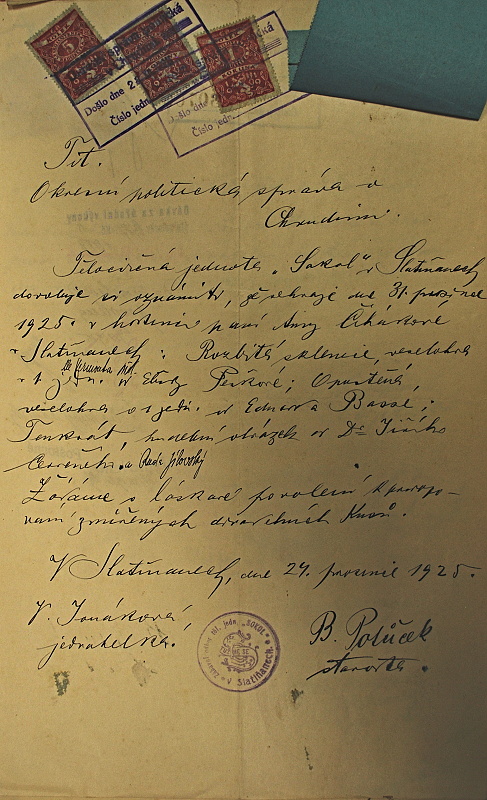 Došlo dne 2
Číslo jedn.
Došlo dne
Číslo jedn.
Tit.
Okresní politická správa v
Chrudimi.
Tělocvičná jednota „Sokol" v Slatiňanech
dovoluje si oznámiti, že sehraje dne 31. prosince
1925. v hostinci paní Anny Čihákové
v Slatiňanech: Rozbitá sklenice, veselohra
v 1 jedn. od Elisy Peškové; Opuštěná,
veselohra o 1 jedn. od Eduarda Basse;
Tenkrát, hudební obrázek od Dr Jiřího
Červeného. a Ruda Jílovský
Žádáme o láskavé povolení k provozo-
vání zmíněných divadelních kusů.
V Slatiňanech, dne 24. prosince 1925.
V. Jonáková,
jednatelka.
B. Polůček
starosta.
těl. jedn. „SOKOL"
v Slatiňanech.